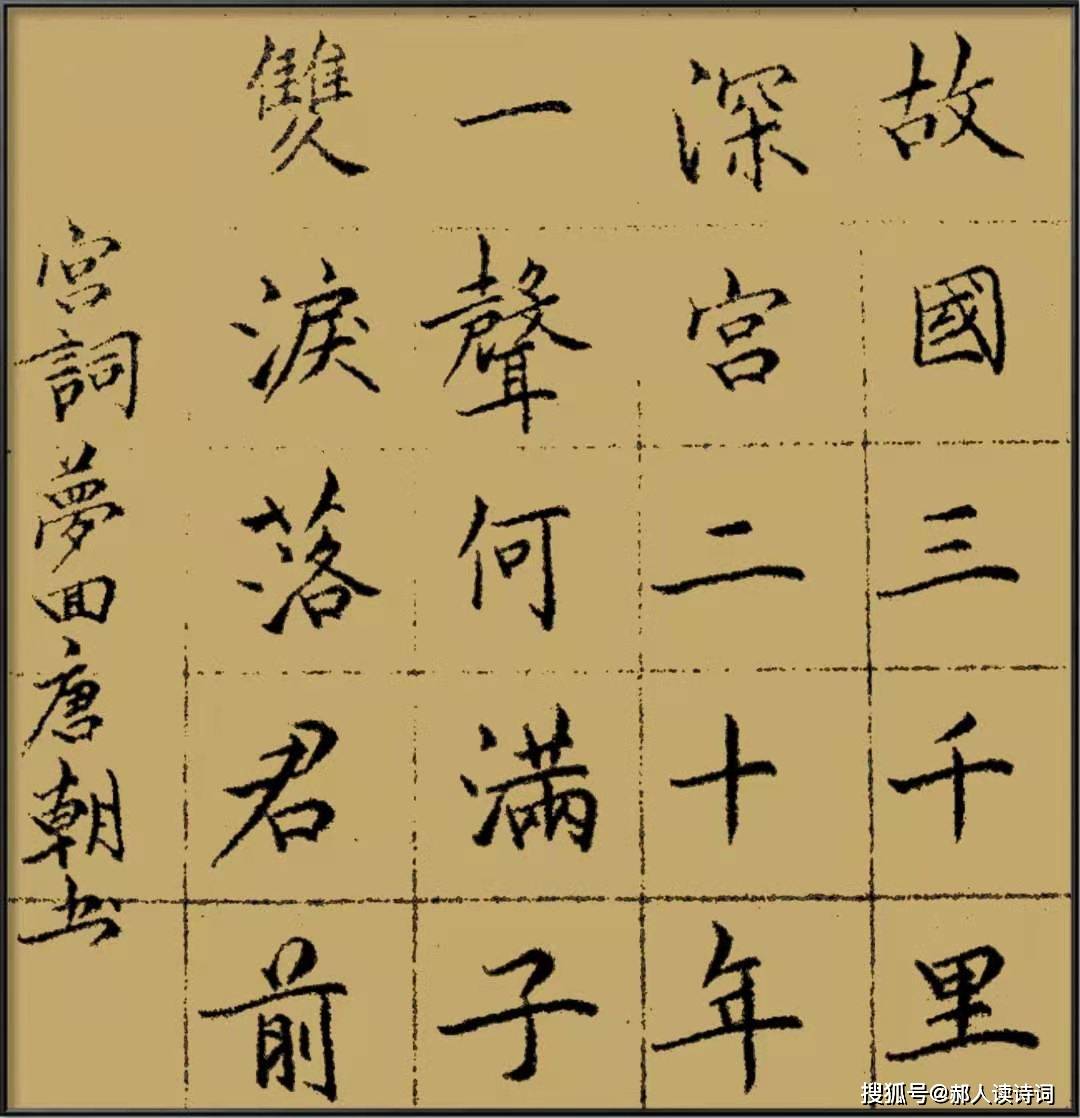 故國三千里
深宫二十年
一聲何滿子
雙淚落君前
宫詞夢回唐朝书
搜狐号@郝人读诗词